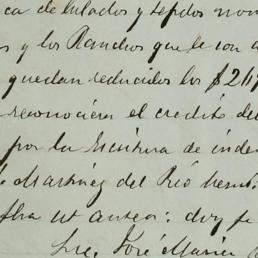 ca de hilados y tejidos nom
s y los Ranchos que le son a
quedan reducidos los $ 269
reconocieron el credito de
por la Escritura de inde
Martinez del Rio herm
fha ut antea: doy fe
Lic. José Maria